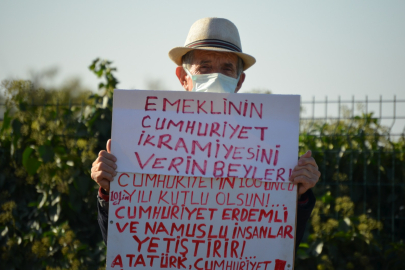 EMEKLİNİN
CUMHURİYET
İKRAMİYESİNİ
VERİN BEYLER!
CUMHURİYETİN 100ÜNCÜ
YILI KUTLU OLSUN!..
CUMHURİYET ERDEMLİ
VE NAMUSLU İNSANLAR
YETİŞTİRİR!
ATATÜRK, CUMHURİYET